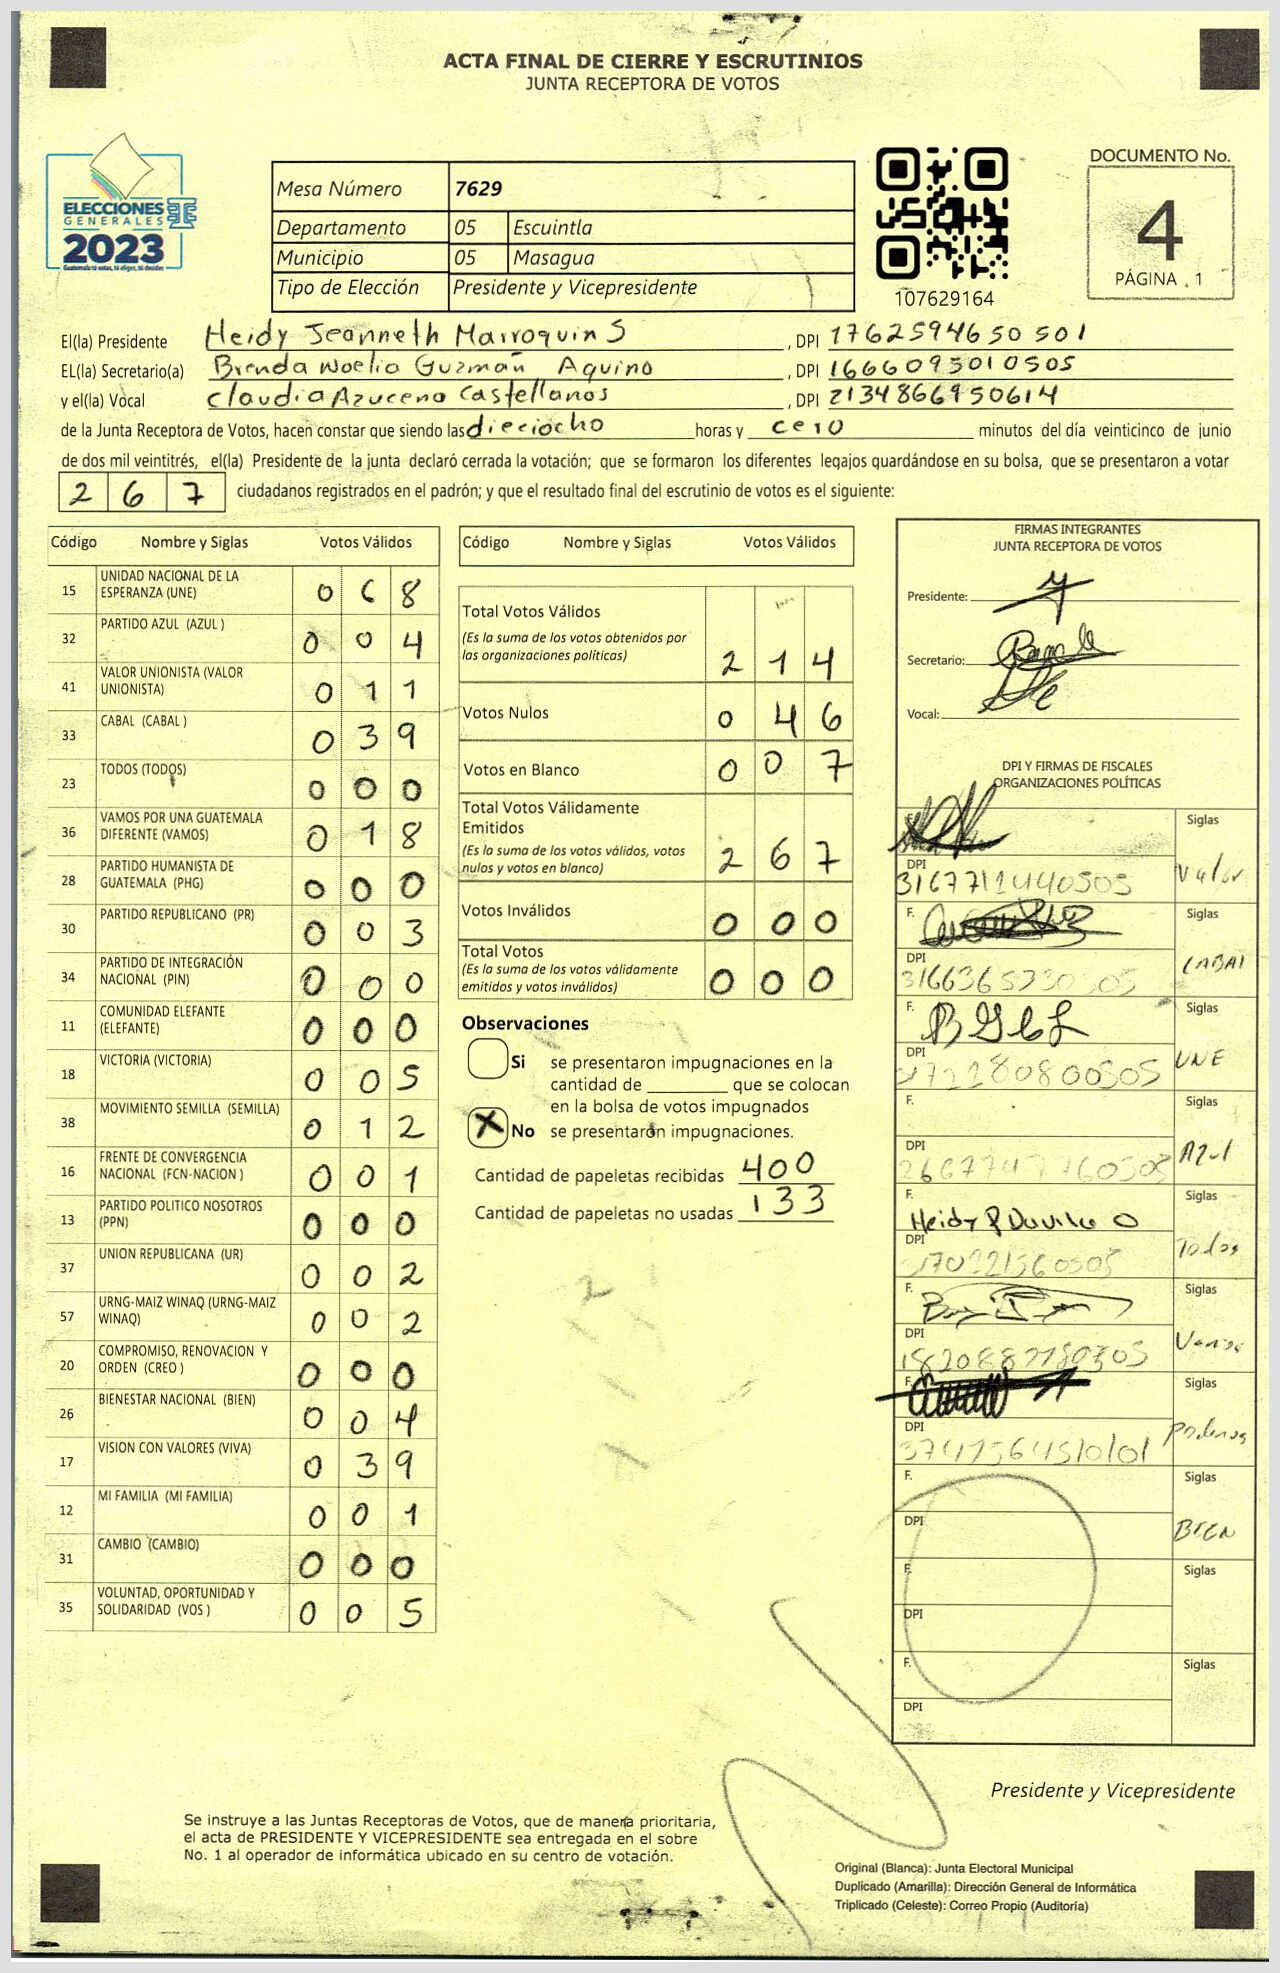 ACTA FINAL DE CIERRE Y ESCRUTINIOS
JUNTA RECEPTORA DE VOTOS
ELECCIONES
GENERALES
2023
Guatemala tú votas, tú eliges, tú decides
Mesa Número 7629
Departamento 05 Escuintla
Municipio 05 Masagua
Tipo de Elección Presidente y Vicepresidente
107629164
DOCUMENTO No.
4
PÁGINA . 1
El(la) Presidente Heidy Jeanneth Marroquin S , DPI 1762594650501
EL(la) Secretario(a) Brenda Noelia Guzmán Aquino , DPI 1666095010505
y el(la) Vocal Claudia Azucena Castellanos , DPI 2134866950614
de la Junta Receptora de Votos, hacen constar que siendo las dieciocho horas y cero minutos del día veinticinco de junio
de dos mil veintitrés, el(la) Presidente de la junta declaró cerrada la votación; que se formaron los diferentes legajos guardándose en su bolsa, que se presentaron a votar
2 6 7 ciudadanos registrados en el padrón; y que el resultado final del escrutinio de votos es el siguiente:
Código Nombre y Siglas Votos Válidos
15 UNIDAD NACIONAL DE LA ESPERANZA (UNE) 0 6 8
32 PARTIDO AZUL (AZUL ) 0 0 4
41 VALOR UNIONISTA (VALOR UNIONISTA) 0 1 1
33 CABAL (CABAL ) 0 3 9
23 TODOS (TODOS) 0 0 0
36 VAMOS POR UNA GUATEMALA DIFERENTE (VAMOS) 0 1 8
28 PARTIDO HUMANISTA DE GUATEMALA (PHG) 0 0 0
30 PARTIDO REPUBLICANO (PR) 0 0 3
34 PARTIDO DE INTEGRACIÓN NACIONAL (PIN) 0 0 0
11 COMUNIDAD ELEFANTE (ELEFANTE) 0 0 0
18 VICTORIA (VICTORIA) 0 0 5
38 MOVIMIENTO SEMILLA (SEMILLA) 0 1 2
16 FRENTE DE CONVERGENCIA NACIONAL (FCN-NACION ) 0 0 1
13 PARTIDO POLITICO NOSOTROS (PPN) 0 0 0
37 UNION REPUBLICANA (UR) 0 0 2
57 URNG-MAIZ WINAQ (URNG-MAIZ WINAQ) 0 0 2
20 COMPROMISO, RENOVACION Y ORDEN (CREO ) 0 0 0
26 BIENESTAR NACIONAL (BIEN) 0 0 4
17 VISION CON VALORES (VIVA) 0 3 9
12 MI FAMILIA (MI FAMILIA) 0 0 1
31 CAMBIO (CAMBIO) 0 0 0
35 VOLUNTAD, OPORTUNIDAD Y SOLIDARIDAD (VOS ) 0 0 5
Código Nombre y Siglas Votos Válidos
Total Votos Válidos
(Es la suma de los votos obtenidos por
las organizaciones políticas) 2 1 4
Votos Nulos 0 4 6
Votos en Blanco 0 0 7
Total Votos Válidamente
Emitidos
(Es la suma de los votos válidos, votos
nulos y votos en blanco) 2 6 7
Votos Inválidos 0 0 0
Total Votos
(Es la suma de los votos válidamente
emitidos y votos inválidos) 0 0 0
Observaciones
Si se presentaron impugnaciones en la
cantidad de ________ que se colocan
en la bolsa de votos impugnados
X No se presentaron impugnaciones.
Cantidad de papeletas recibidas 400
Cantidad de papeletas no usadas 133
FIRMAS INTEGRANTES
JUNTA RECEPTORA DE VOTOS
Presidente:
Secretario:
Vocal:
DPI Y FIRMAS DE FISCALES
ORGANIZACIONES POLÍTICAS
Siglas
DPI
3167711440505 Valor
F. Siglas
DPI
CABAL
F. Siglas
DPI
UNE
F. Siglas
DPI
Azul
F. Siglas
Heidy P Davila O
DPI
Todos
F. Siglas
DPI
F. Siglas
DPI
Podemos
F. Siglas
DPI
BIEN
F. Siglas
DPI
F. Siglas
DPI
Presidente y Vicepresidente
Se instruye a las Juntas Receptoras de Votos, que de manera prioritaria,
el acta de PRESIDENTE Y VICEPRESIDENTE sea entregada en el sobre
No. 1 al operador de informática ubicado en su centro de votación.
Original (Blanca): Junta Electoral Municipal
Duplicado (Amarilla): Dirección General de Informática
Triplicado (Celeste): Correo Propio (Auditoría)